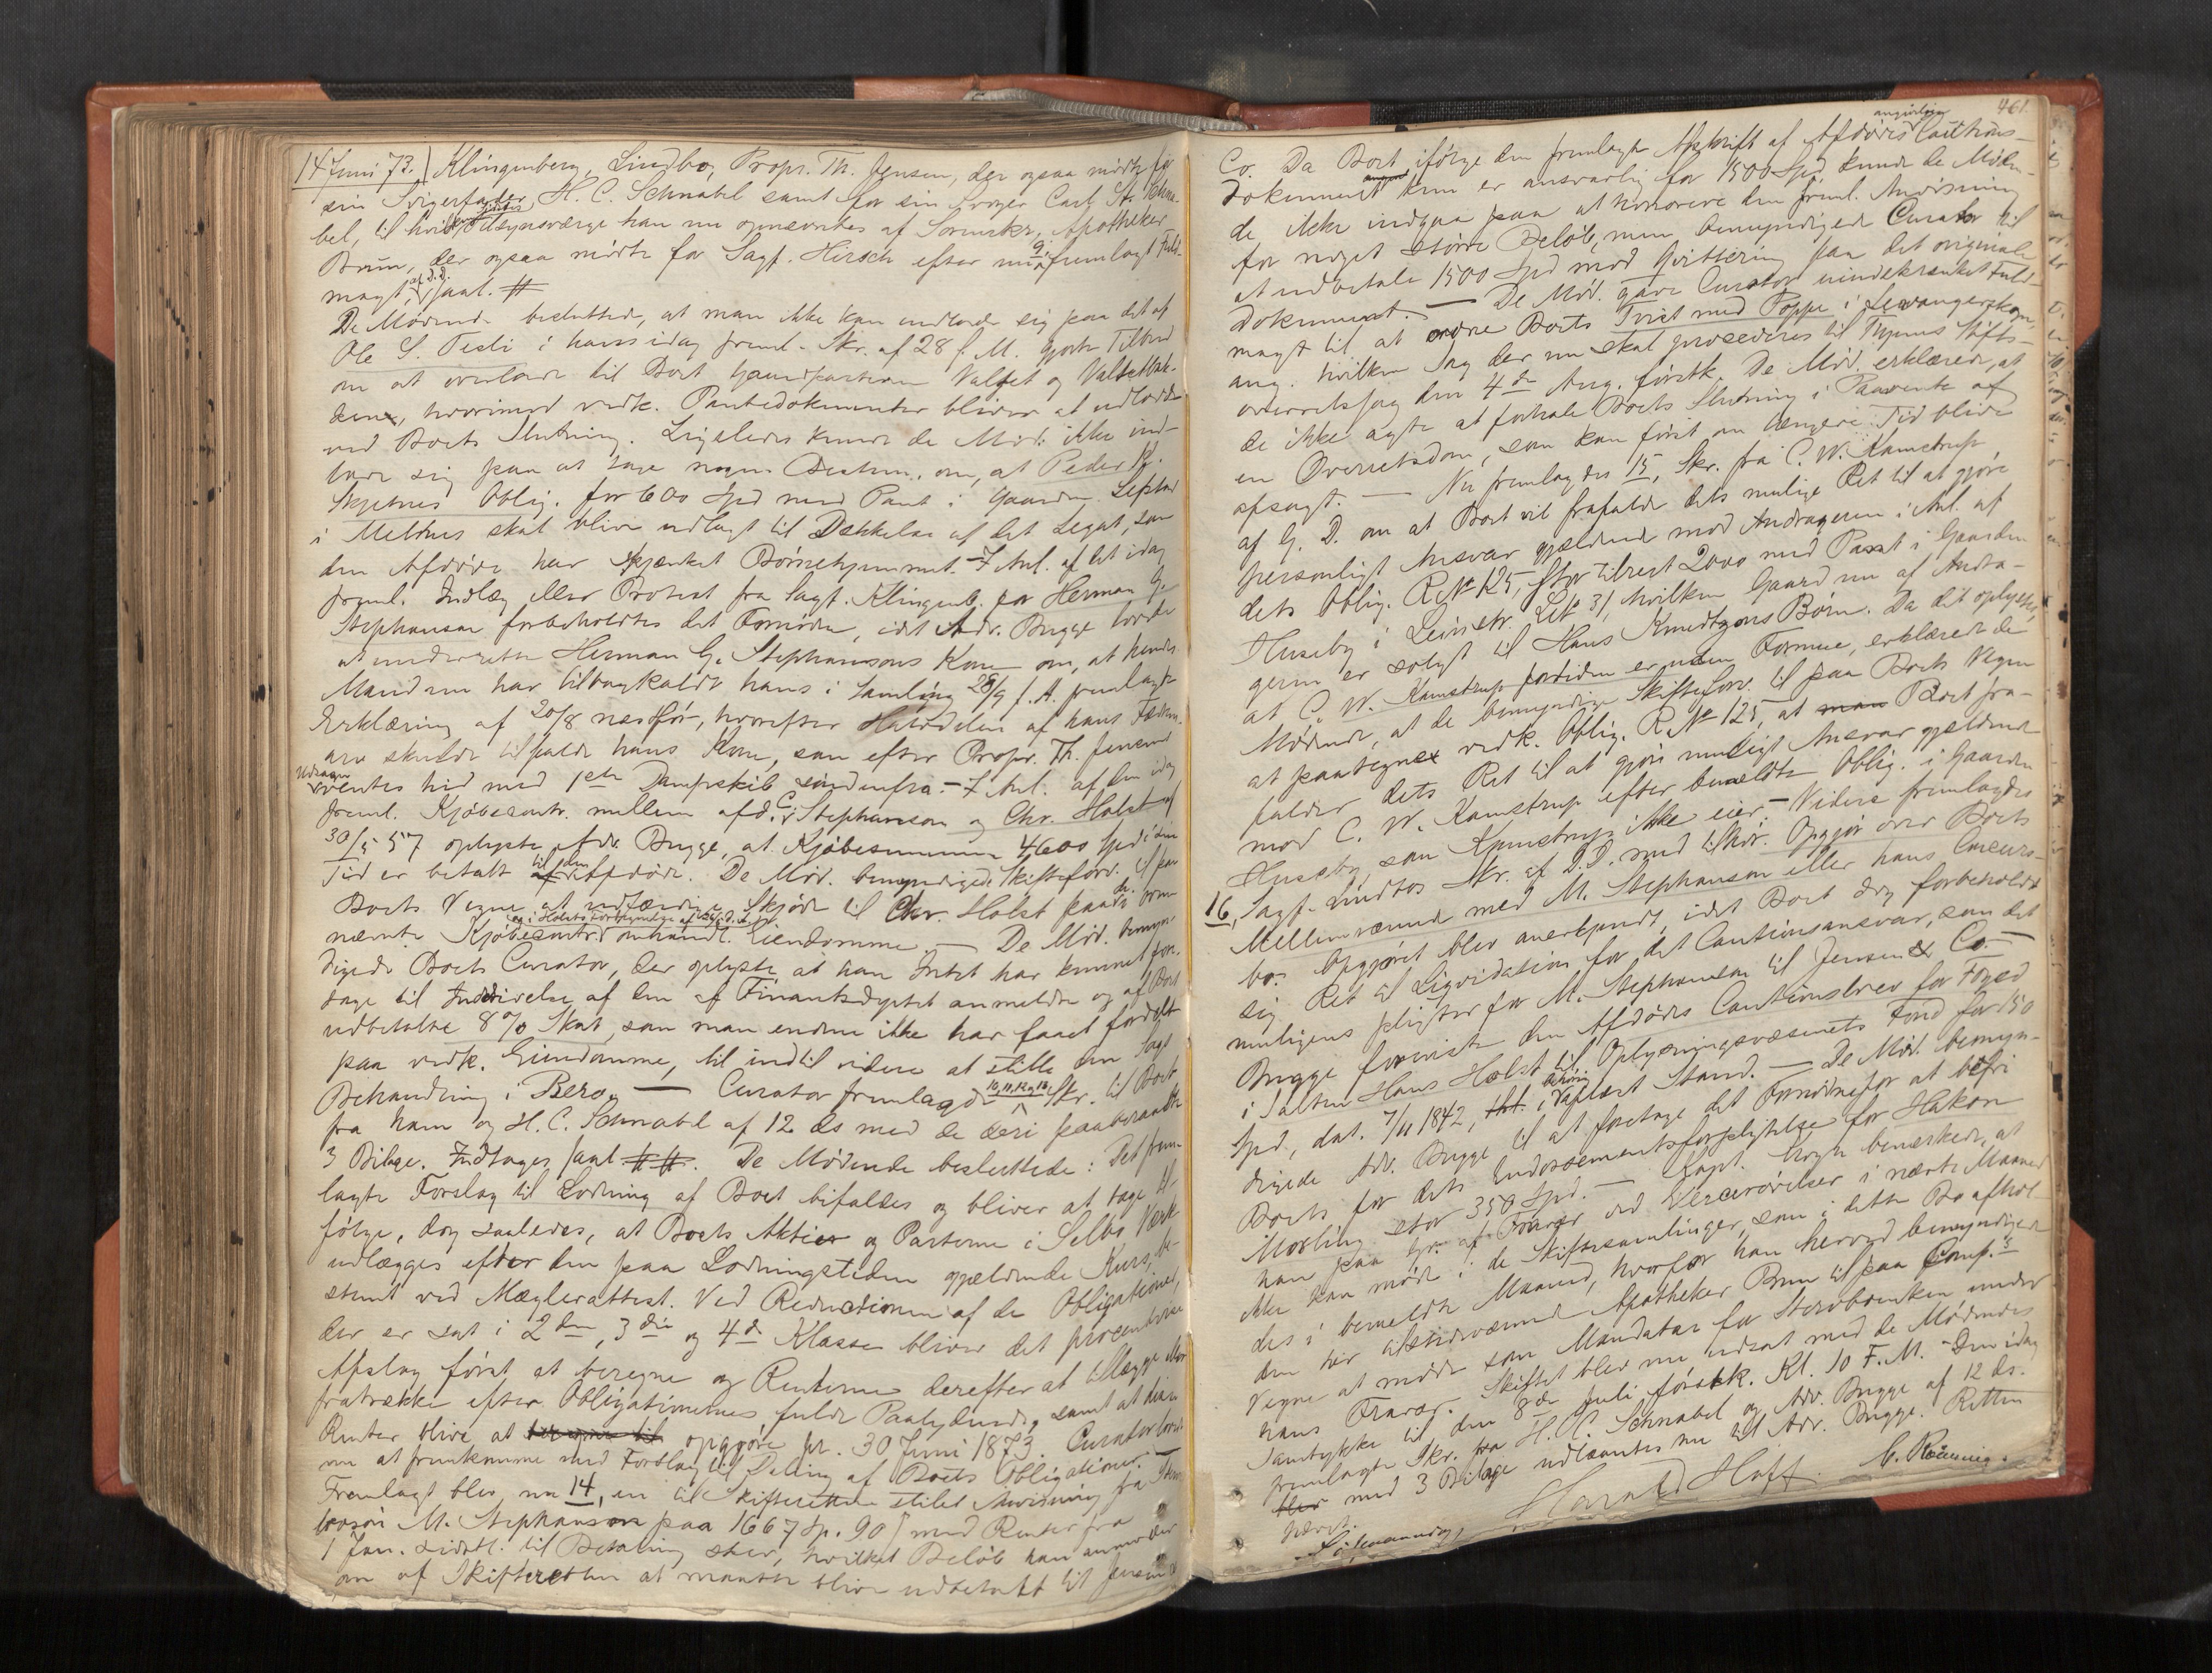 14 Juni 73.) Klingenberg, Lindbo, Propr. Th. Jensen, der ogsaa mødte for
sin Svigerfader, H. C. Schnabel samt for sin Svoger Carl Schna-
bel, til hvis Tilsynsværge han nu opnævntes af Sorenskr., Apotheker
Brun, der ogsaa mødte for Sagf. Hirsch efter nu 9, fremlagt Fuld-
magt, af D.D. saal. #
De Mødende besluttede, at man ikke kan indlade sig paa det af
Ole S. Tesli i hans idag freml. Skr. af 28 f. M. gjorte Tilbud
om at overlade til Boet Gaardparterne Valset og Valset-
, hvorimod vedk. Pantedokumenter bliver at udlodde
ved Boets Slutning. Ligeledes kunde de Mød. ikke ind-
lade sig paa at tage nogen Bestem. om, at Peder K.
Skjetnes Oblig. for 600 Spd med Pant i Gaarden Leptad
i Meldus skal blive udlagt til Dækkelse af det Legat, som
den Afdøde har skjænket Børnehjemmet. - I Anl. af det idag
freml. Indlæg eller Protest fra Sagf. Klingenb. for Herman G.
Stephanson forbeholdtes det Fornødne, idet Adv. Bugge lovede
at underrette Herman G. Stephansons Kone om, at hendes
Mand nu har tilbagekaldt hans i Samling 28/9 f. A. fremlagte
Erklæring af 20/8 næstfør, hvorefter Halvdelen af hans Fædrene-
arv skulde tilfalde hans Kone, som efter Propr. Th. Jensens
Udsagn ventes hid med 1ste Dampskib søndenfra. - I Anl. af den idag
freml. Kjøbecontr. mellem afd. C. Stephanson og Chr. Holst af
30/5 57 oplyste Adv. Bugge, at Kjøbesummen 4600 Spd i sin
Tid er betalt til den Afdøde. De Mød. bemyndigede Skifteforv. til paa
Boets Vegne at udfærdige Skjøde til Chr. Holst paa de oven
nævnte Kjøbecontr. omhandl. Eiendomme. — De Mød. bemyn-
digede Boets Curator, der oplyste, at han Intet har kunnet fore-
tage til Inddrivelse af den af Finantsdeptet anmeldte og af Boet
udbetalte 8% Skat, som man endnu ikke har faaet fordelt
paa vedk. Eiendomme, til indtil videre at stille den Sags
Behandling i Bero. — Curator fremlagde 10, 11, 12 og 13, Skr. til Boet
fra ham og H. C. Schnabel af 12 ds med de deri paaberaabte
3 Bilage. Indtages saal. # #. De Mødende besluttede: Det frem-
lagte Forslag til Lodning af Boet bifaldes og bliver at tage til-
følge, dog saaledes, at Boets Aktier og Parterne i Selbo Værk
udlægges efter den paa Lodningstiden gjældende Kurs, be-
stemt ved Mæglerattest. Ved Reductionen af de Obligationer,
der er sat i 2den, 3die og 4de Klasse bliver det procentvise
Afslag først at beregne og Renterne derefter at tillægge eller
fratrække efter Obligationernes fulde Paalydende, samt at disse
Renter blive at opgjøre pr. 30 Juni 1873. Curator lovede
nu at fremkomme med Forslag til Deling af Boets Obligationer. —
Fremlagt blev nu 14, en til Skifteretten stilet Anvisning fra
M. Stephanson paa 1667 Sp. 90 ß med Renter fra
1 Jan. sidstl. til Betaling sker, hvilket Beløb han anmoder
om af Skifteretten at maatte blive udbetalt til Jensen &
461.
Co. Da Boet ifølge den fremlagte Afskrift af Afdødes angivelige Cautions-
dokument kun er ansvarlig for 1500 Spd kunde de Møden-
de ikke indgaa paa at honorere den freml. Anvisning
for noget større Beløb, men bemyndigede Curator til
at udbetale 1500 Spd mod Qvittering paa det originale
Dokument. — De Mød. gave Curator uindskrænket Fuld-
magt til at ordne Boets Tvist med Poppe i Levanger
ang. hvilken Sag der nu skal procederes til Thjems Stifts-
overretssag den 4de Aug. førstk. De Mød. erklærede, at
de ikke agte at forhale Boets Slutning i Paavente af
en Overretsdom, som kan først om længere Tid blive
afsagt. — Nu fremlagdes 15, Skr. fra C. W. Kamstrup
af G. D. om at Boet vil frafalde dets mulige Ret til at gjøre
personligt Ansvar gjældende mod Andrageren i Anl. af
dets Oblig. R. No 125, stor tilrest 2000 med Pant i Gaarden
Huseby i Leinstr. Litr 31, hvilken Gaard nu af Andra-
geren er solgt til Hans Knudtzons Børn. Da det oplystes,
at C. W. Kamstrup fortiden er uden Formue, erklærede de
Mødende, at de bemyndige Skifteforv. til paa Boets Vegne
at paategne vedk. Oblig. R. No 125, at Boet fra-
falder dets Ret til at gjøre muligt Ansvar gjældende
mod C. W. Kamstrup efter bemeldte Oblig. i Gaarden
Huseby, som Kamstrup ikke eier. - Videre fremlagdes
16, Sagf. Lindbos Skr. af D.D. med tilhør. Opgjør over Boets
Mellemværende med M. Stephanson eller hans Concurs-
bo. Opgjøret blev anerkjendt, idet Boet dog forbeholdt
sig Ret til Liqvidation for det Cautionsansvar, som det
muligens pligter for M. Stephanson til Jensen & Co. —
Bugge foreviste den Afdødes Cautionsbrev for Foged
i Salten Hans Holst til Oplysningsvæsenets Fond for 150
Spd, dat. 7/11 1842, i behørig kasseret Stand. — De Mød. bemyn-
digede Adv. Bugge til at foretage det Fornødne for at befri
Boets for dets Endossementsforpligtelse for Hakon
Morling stor 350 Spd. — Kapt. Krogh bemærkede, at
han paa Gr. af Fravær ved Vexerøvelser i næste Maaned
ikke kan møde i de Skiftesamlinger, som i dette Bo afhol-
des i bemeldte Maaned, hvorfor han herved bemyndigede
den her tilstedeværende Apotheker Brun til paa Comp.s
Vegne at møde som Mandatar for Stervboenken under
hans Fravær. Skiftet blev nu udsat med de Mødendes
Samtykke til den 8de Juli førstk. Kl. 10 F.M. - Den idag
fremlagte Skr. fra H. C. Schnabel og Adv. Bugge af 12 ds.
med 3 Bilage udlaantes nu til Adv. Bugge. Retten
hævet.
Harald Hoff. C. Rønning.